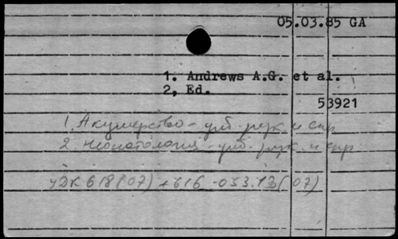 05.03.85 GA
1. Andrews A.G. et al.
2, Ed.
53921
1. Акушерство - уч. рук. и спр
2. Неонатология - уч. рук. и спр
УДК 618(07)+616-053.13(07)